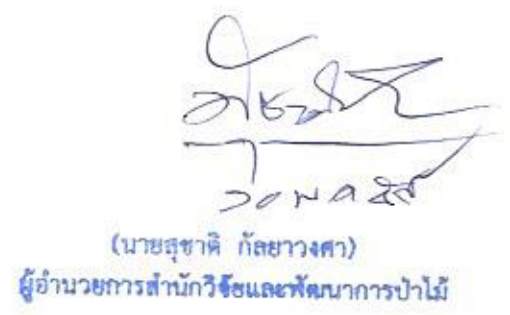 (นายสุชาติ กัลยาวงศา)
ผู้อำนวยการสำนักวิจัยและพัฒนาการป่าไม้